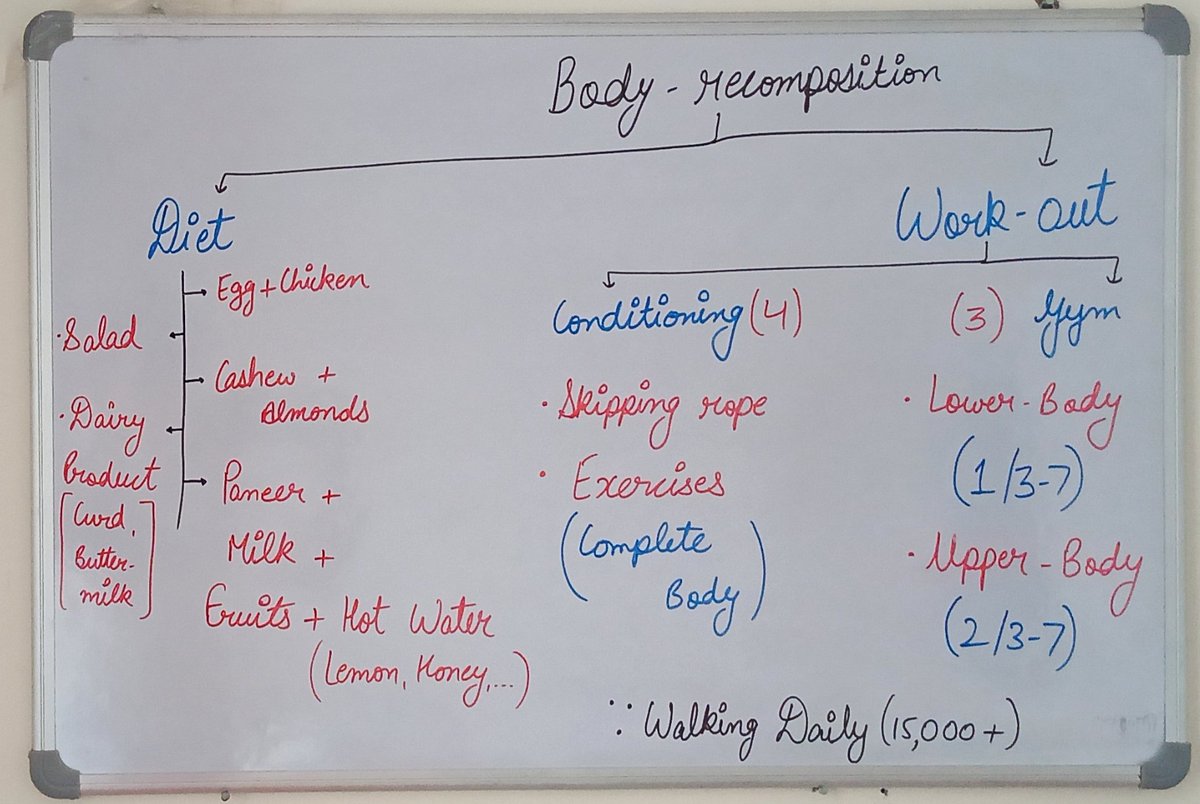 Body-recomposition
Diet
Egg+Chicken
·Salad
Cashew +
Almonds
·Dairy
Product
[Curd,
Butter-
milk]
Paneer +
Milk +
Fruits + Hot Water
(Lemon, Honey,...)
Work-out
Conditioning (4)
· Skipping rope
· Exercises
(Complete
Body)
(3) Gym
· Lower-Body
(1/3-7)
· Upper-Body
(2/3-7)
∵ Walking Daily (15,000+)